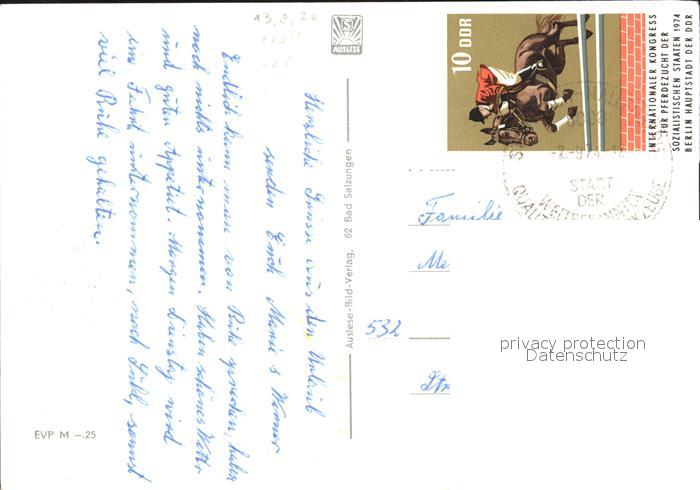 Herzliche Grüsse aus dem Urlaub
senden Euch Maria & Werner
Endlich kann man von Ruhe sprechen, haben
noch nichts unternommen. Haben schönes Wetter
und guten Appetit. Morgen Dienstag wird
eine Fahrt unternommen, nach Suhl, sonst
viel Ruhe gehalten.
EVP M –.25
13.8.
AUSLESE
Auslese-Bild-Verlag, 62 Bad Salzungen
10 DDR
INTERNATIONALER KONGRESS
FÜR PFERDEZUCHT DER
SOZIALISTISCHEN STAATEN 1974
BERLIN HAUPTSTADT DER DDR
-2.-9.74
STADT
DER
WELTBEKANNTEN
Familie
Me
532
Str
privacy protection
Datenschutz